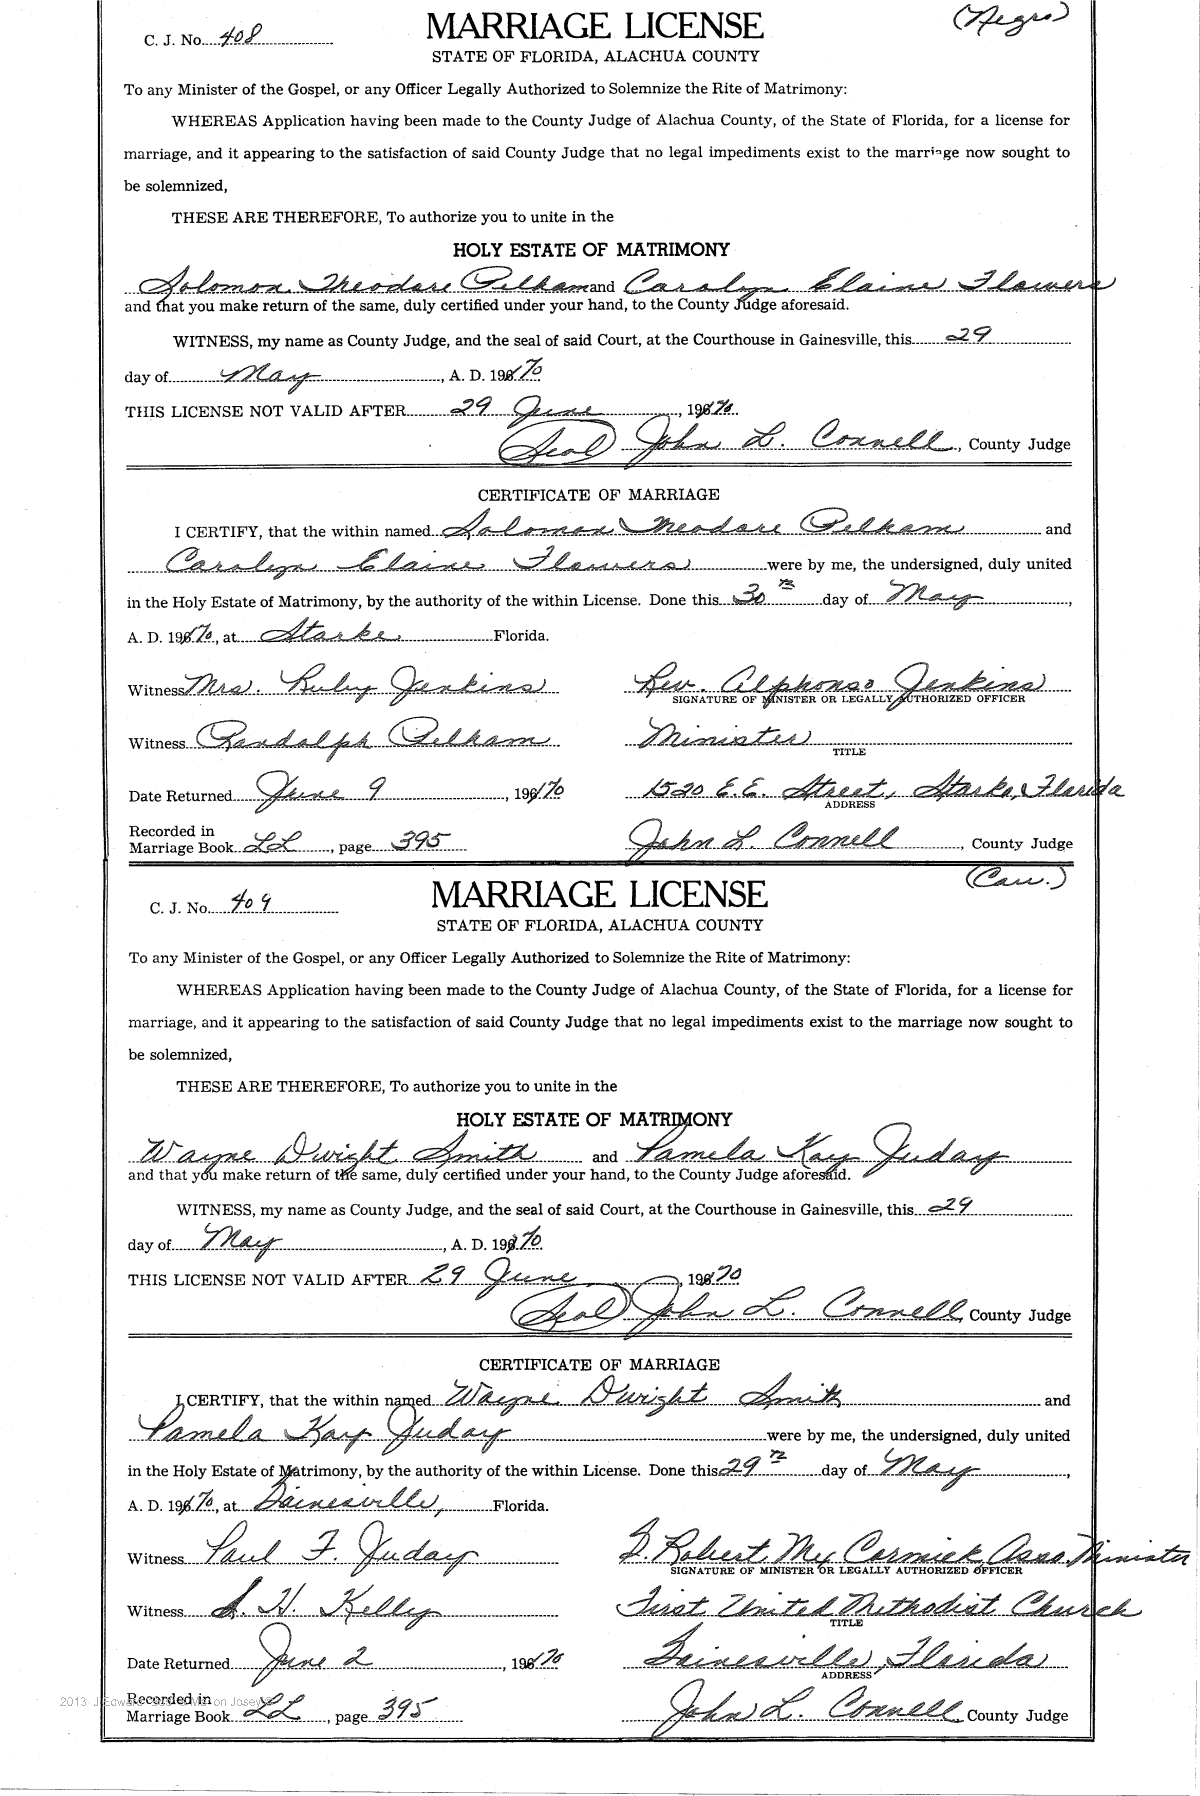 (Negro)
C. J. No. 408
MARRIAGE LICENSE
STATE OF FLORIDA, ALACHUA COUNTY
To any Minister of the Gospel, or any Officer Legally Authorized to Solemnize the Rite of Matrimony:
WHEREAS Application having been made to the County Judge of Alachua County, of the State of Florida, for a license for
marriage, and it appearing to the satisfaction of said County Judge that no legal impediments exist to the marriage now sought to
be solemnized,
THESE ARE THEREFORE, To authorize you to unite in the
HOLY ESTATE OF MATRIMONY
Solomon Theodore Pelham and Carolyn Elaine Flowers
and that you make return of the same, duly certified under your hand, to the County Judge aforesaid.
WITNESS, my name as County Judge, and the seal of said Court, at the Courthouse in Gainesville, this 29
day of May, A. D. 1970
THIS LICENSE NOT VALID AFTER 29 June, 1970.
(Seal) John L. Connell, County Judge
CERTIFICATE OF MARRIAGE
I CERTIFY, that the within named Solomon Theodore Pelham and
Carolyn Elaine Flowers were by me, the undersigned, duly united
in the Holy Estate of Matrimony, by the authority of the within License. Done this 30th day of May,
A. D. 1970, at Starke Florida.
Witness Mrs. Ruby Jenkins Rev. Alphonso Jenkins
SIGNATURE OF MINISTER OR LEGALLY AUTHORIZED OFFICER
Witness Randolph Pelham Minister
TITLE
Date Returned June 9, 1970 1520 E.E. Street, Starke, Florida
ADDRESS
Recorded in
Marriage Book LL, page 395 John L. Connell, County Judge
(Cau.)
C. J. No. 409
MARRIAGE LICENSE
STATE OF FLORIDA, ALACHUA COUNTY
To any Minister of the Gospel, or any Officer Legally Authorized to Solemnize the Rite of Matrimony:
WHEREAS Application having been made to the County Judge of Alachua County, of the State of Florida, for a license for
marriage, and it appearing to the satisfaction of said County Judge that no legal impediments exist to the marriage now sought to
be solemnized,
THESE ARE THEREFORE, To authorize you to unite in the
HOLY ESTATE OF MATRIMONY
Wayne Dwight Smith and Pamela Kay Juday
and that you make return of the same, duly certified under your hand, to the County Judge aforesaid.
WITNESS, my name as County Judge, and the seal of said Court, at the Courthouse in Gainesville, this 29
day of May, A. D. 1970
THIS LICENSE NOT VALID AFTER 29 June, 1970
(Seal) John L. Connell, County Judge
CERTIFICATE OF MARRIAGE
I CERTIFY, that the within named Wayne Dwight Smith and
Pamela Kay Juday were by me, the undersigned, duly united
in the Holy Estate of Matrimony, by the authority of the within License. Done this 29th day of May,
A. D. 1970, at Gainesville, Florida.
Witness Paul F. Juday G. Robert McCormick, Asso. Minister
SIGNATURE OF MINISTER OR LEGALLY AUTHORIZED OFFICER
Witness S. H. Kelly First United Methodist Church
TITLE
Date Returned June 2, 1970 Gainesville, Florida
ADDRESS
Recorded in
Marriage Book LL, page 395 John L. Connell, County Judge